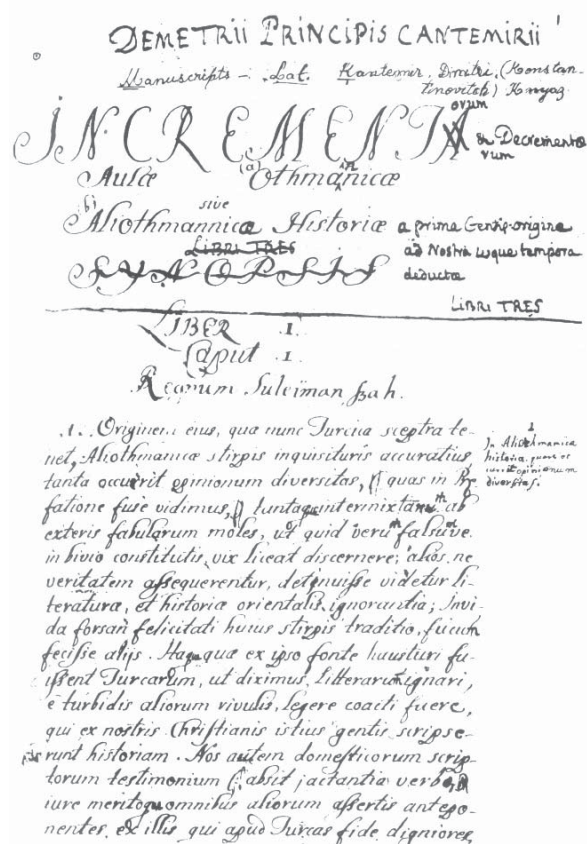 DEMETRII PRINCIPIS CANTEMIRII
Manuscripts – Lat. Kantemir, Dmitri, (Konstan-
tinovitch) Knyaz
orum
INCREMENTA & Decrementorum
Aulæ (a) Othmanicæ
b) sive
Aliothmannicæ Historiæ a prima Gentis origine
LIBRI TRES ad Nostra usque tempora
SYNOPSIS deductæ
LIBRI TRES
LIBER .1.
Caput .1.
Regnum Suleiman Shah.
.1. Originem eius, qua nunc Turcica sceptra te-
net, Aliothmanicæ stirpis inquisituris accuratius
tanta occurrit opinionum diversitas, quas in Præ
fatione fuse vidimus, ab
exteris fabularum moles, ut quid veri falsive
in bivio constitutis, vix liceat discernere; alios, ne
veritatem assequerentur, detinuisse videtur li-
teratura, et historiæ orientalis ignorantia; invi-
da forsan felicitati huius stirpis traditio, fucum
fecisse aliis. qua ex ipso fonte hausturi fu-
issent Turcarum, ut diximus, litterarum ignari,
e turbidis aliorum rivulis, legere coacti fuere,
qui ex nostris Christianis istius gentis scripse-
runt historiam. Nos autem domesticorum scrip-
torum testimonium absit jactantia verbo,
iure meritoque omnibus aliorum assertis antepo-
nentes, ex illis qui apud Turcas fide digniores
1
In Aliothmanica
historia
opinionum
diversitas.